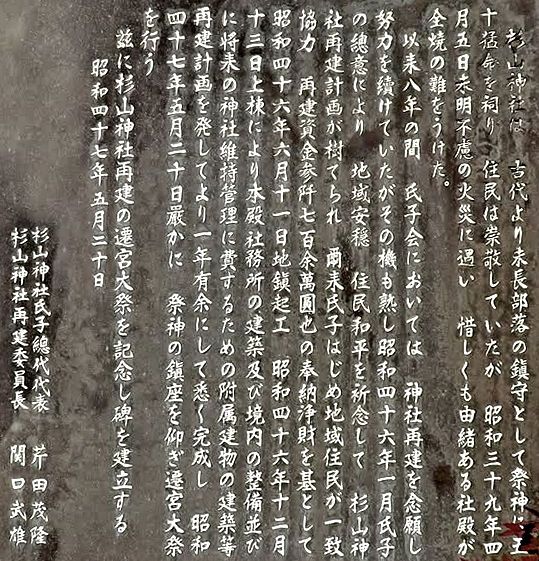 杉山神社は　古代より末長部落の鎮守として祭神に五
十猛命を祠り　住民は崇敬していたが　昭和三十九年四
月五日未明不慮の火災に遇い　惜しくも由緒ある社殿が
全焼の難をうけた。
以来八年の間　氏子会においては　神社再建を念願し
努力を続けていたがその機も熟し昭和四十六年一月氏子
の總意により　地域安穏　住民和平を祈念して　杉山神
社再建計画が樹てられ　爾来氏子はじめ地域住民が一致
協力　再建資金参阡七百余萬圓也の奉納浄財を基として
昭和四十六年六月十一日地鎮起工　昭和四十六年十二月
十三日上棟により本殿社務所の建築及び境内の整備並び
に将来の神社維持管理に費するための附属建物の建築等
再建計画を発してより一年有余にして悉く完成し　昭和
四十七年五月二十日厳かに　祭神の鎮座を仰ぎ遷宮大祭
を行う
茲に杉山神社再建の遷宮大祭を記念し碑を建立する
昭和四十七年五月二十日
杉山神社氏子總代代表　芹田茂隆
杉山神社再建委員長　関口武雄